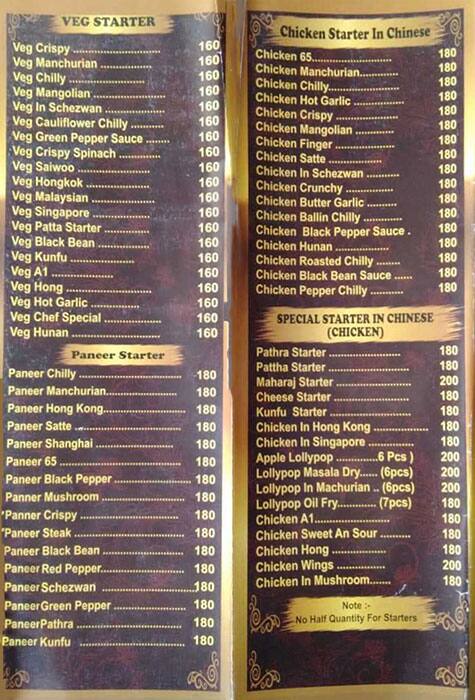 VEG STARTER
Veg Crispy ........................ 160
Veg Manchurian ................ 160
Veg Chilly ......................... 160
Veg Mangolian .................. 160
Veg In Schezwan .............. 160
Veg Cauliflower Chilly ....... 160
Veg Green Pepper Sauce ....... 160
Veg Crispy Spinach .......... 160
Veg Saiwoo ...................... 160
Veg Hongkok .................... 160
Veg Malaysian .................. 160
Veg Singapore .................. 160
Veg Patta Starter .............. 160
Veg Black Bean ................ 160
Veg Kunfu ........................ 160
Veg A1 ............................. 160
Veg Hong ......................... 160
Veg Hot Garlic .................. 160
Veg Chef Special .............. 160
Veg Hunan ....................... 160
Paneer Starter
Paneer Chilly .................... 180
Paneer Manchurian........... 180
Paneer Hong Kong............ 180
Paneer Satte .................... 180
Paneer Shanghai .............. 180
Paneer 65 ........................ 180
Paneer Black Pepper ........ 180
Panner Mushroom ............ 180
Panner Crispy .................. 180
Paneer Steak ................... 180
Paneer Black Bean ........... 180
Paneer Red Pepper........... 180
Paneer Schezwan ............. 180
Paneer Green Pepper ........ 180
PaneerPathra ................... 180
Paneer Kunfu .................. 180
Chicken Starter In Chinese
Chicken 65........................ 180
Chicken Manchurian............ 180
Chicken Chilly.................... 180
Chicken Hot Garlic .............. 180
Chicken Crispy .................. 180
Chicken Mangolian ............ 180
Chicken Finger .................. 180
Chicken Satte .................... 180
Chicken In Schezwan .......... 180
Chicken Crunchy ................ 180
Chicken Butter Garlic .......... 180
Chicken Ballin Chilly ........... 180
Chicken Black Pepper Sauce . 180
Chicken Hunan .................. 180
Chicken Roasted Chilly ....... 180
Chicken Black Bean Sauce ..... 180
Chicken Pepper Chilly ......... 180
SPECIAL STARTER IN CHINESE
(CHICKEN)
Pathra Starter .................... 180
Pattha Starter .................... 180
Maharaj Starter .................. 200
Cheese Starter ................... 180
Kunfu Starter ..................... 180
Chicken In Hong Kong ......... 180
Chicken In Singapore .......... 180
Apple Lollypop ..............6 Pcs ) 200
Lollypop Masala Dry...... (6pcs) 200
Lollypop In Machurian .. (6pcs) 200
Lollypop Oil Fry............. (7pcs) 200
Chicken A1......................... 180
Chicken Sweet An Sour ........ 180
Chicken Hong ..................... 180
Chicken Wings .................... 200
Chicken In Mushroom....... 180
Note :-
No Half Quantity For Starters